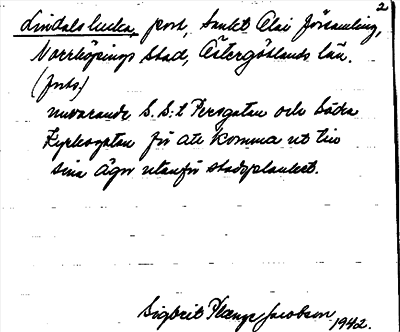 2
Lindals lucka, port, Sankt Olai församling,
Norrköpings stad, Östergötlands län.
(forts.)
nuvarande S. S:t Persgatan och Södra
Kyrkogatan för att komma ut till
sina ägor utanför stadsplanket.
Sigbrit Plænge Jacobson
1942.